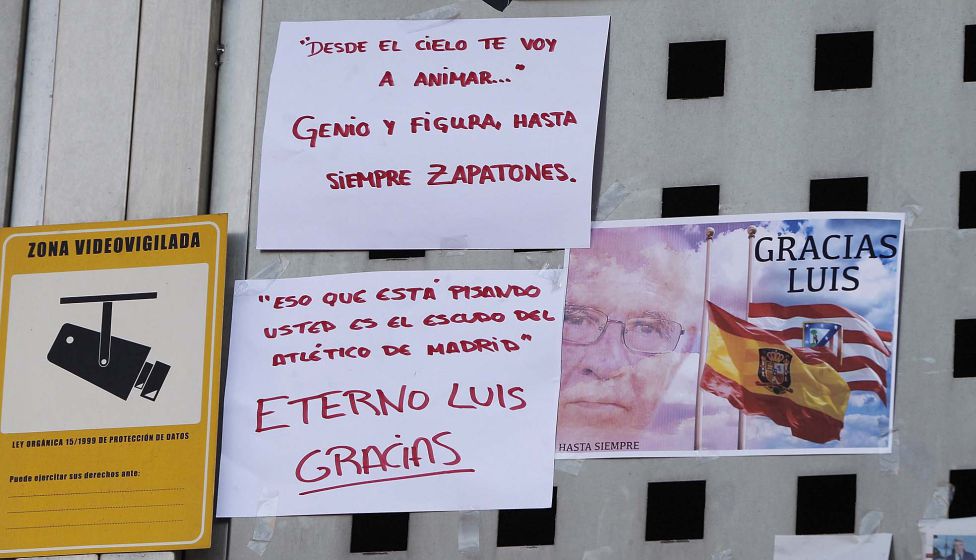 "DESDE EL CIELO TE VOY
A ANIMAR..."
GENIO Y FIGURA, HASTA
SIEMPRE ZAPATONES.
ZONA VIDEOVIGILADA
LEY ORGÁNICA 15/1999 DE PROTECCIÓN DE DATOS
Puede ejercitar sus derechos ante:
"ESO QUE ESTÁ PISANDO
USTED ES EL ESCUDO DEL
ATLÉTICO DE MADRID"
ETERNO LUIS
GRACIAS
GRACIAS
LUIS
HASTA SIEMPRE